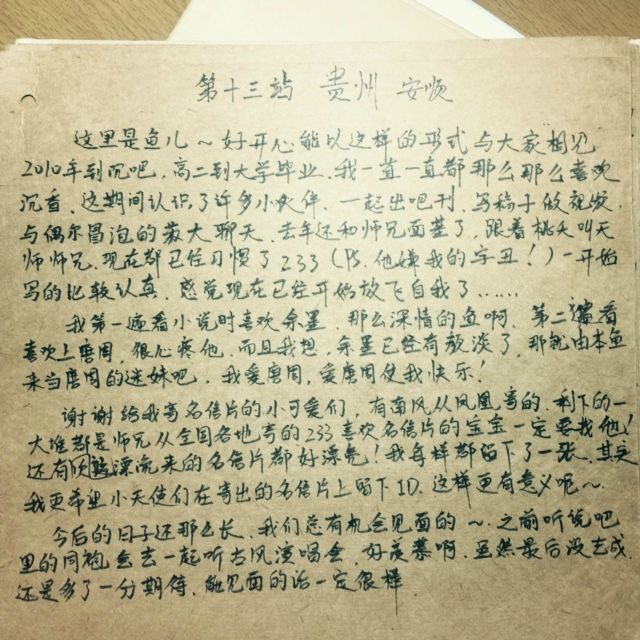 第十三站 贵州 安顺
这里是鱼儿~好开心能以这样的形式与大家相见
2010年到沉吧,高二到大学毕业,我一直一直都那么那么喜欢
沉香,这期间认识了许多小伙伴,一起出吧刊,写稿子做视频,
与偶尔冒泡的蔡大聊天,去年还和师兄面基了,跟着桃夭叫天
师师兄,现在都已经习惯了233(PS.他嫌我的字丑!)一开始
写的比较认真,感觉现在已经开始放飞自我了......
我第一遍看小说时喜欢余墨,那么深情的鱼啊,第二遍看
喜欢上唐周,很心疼他,而且我想,余墨已经有颜淡了,那就由本鱼
来当唐周的迷妹吧,我爱唐周,爱唐周使我快乐!
谢谢给我寄名信片的小可爱们,有南风从凤凰寄的,剩下的一
大堆都是师兄从全国各地寄的233喜欢名信片的宝宝一定要找他!
还有漂流来的名信片都好漂亮!我每样都留下了一张,其实
我更希望小天使们在寄出的名信片上留下ID,这样更有意义呢~
今后的日子还那么长,我们总有机会见面的~之前听说吧
里的同袍会去一起听古风演唱会,好羡慕啊,虽然最后没去成
还是多了一分期待,能见面的话一定很棒